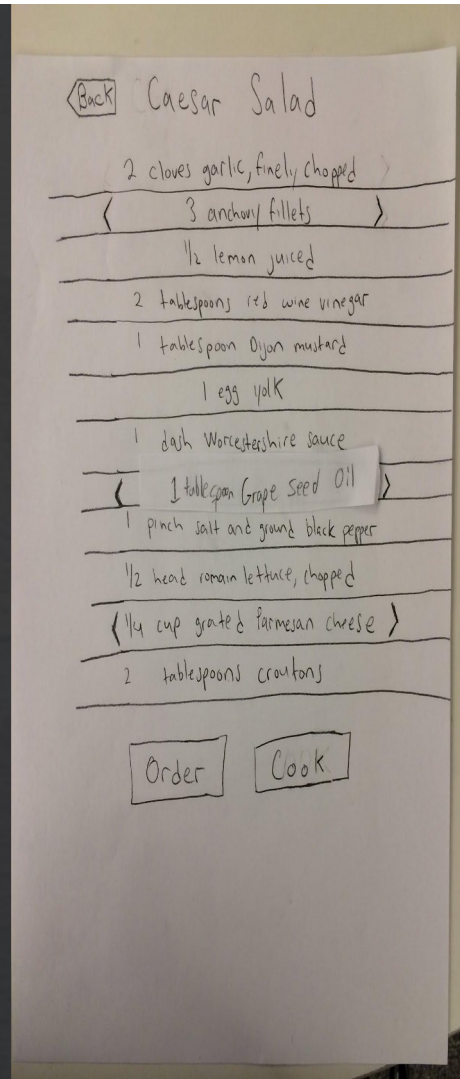 Back Caesar Salad
2 cloves garlic, finely chopped
< 3 anchovy fillets >
1/2 lemon juiced
2 tablespoons red wine vinegar
1 tablespoon Dijon mustard
1 egg yolk
1 dash Worcestershire sauce
< 1 tablespoon Grape Seed Oil >
1 pinch salt and ground black pepper
1/2 head romain lettuce, chopped
< 1/4 cup grated Parmesan cheese >
2 tablespoons croutons
Order Cook